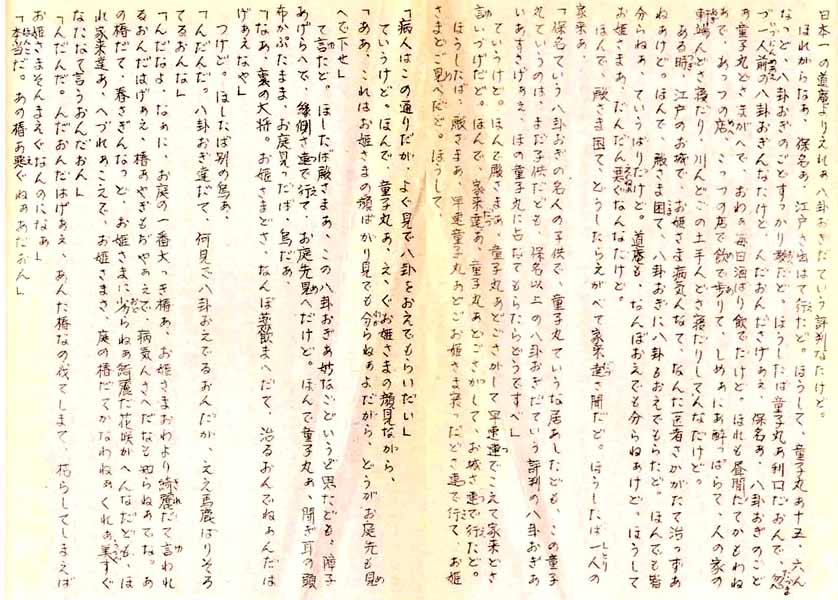 日本一の道庵よりえれぁ八卦おぎだていう評判なたけど。
ほれからなぁ、保名ぁ、江戸さ出はて行たど。ほうして、童子丸ぁ十五、六ん
なっど、八卦おぎのごとすっかり教だど。ほうしたば童子丸ぁ利口だおんで、忽
づ一人前の八卦おぎんなたけど、んだおんださげぇぁ、保名ぁ、八卦おぎのごど
ぁ童子丸どさまがへで、おわぁ毎日酒ばり飲でたけど。ほれも昼間だてかもわね
あで、あっつの店、こっつの店で飲で歩りて、しめぁにぁ酔っぱらて、人の家の
軒端んどさ寝だり、川んどこの土手んどさ寝だりしてんなだけど。
ある時、江戸のお城で、お姫さま病気んなて、なんた医者さかがたて治っずぁ
ねぁけど。ほんで、殿さま困て、八卦おぎに八卦もおえでもらたど。ほんでも皆
分らねぁ、ていうばりだけど。道庵も、なんぼおえでも分らねぁけど、ほうして
お姫さまぁ、だんだん悪ぐなんなだけど。
ほんで、殿さま困て、どうしたらえがべて家来達さ聞だど。ほうしたば一人の
家来ぁ、
「保名ていう八卦おぎの名人の子供で、童子丸ていうな居あしたども、この童子
丸ていうのは、まだ子供だども、保名以上の八卦おぎだていう評判の八卦おぎぁ
いあすさげぇぁ、ほの童子丸に占なてもらたらどうですべ」
ていうけど。ほんで殿さまぁ、童子丸ぁどごさがして早速連でこえて家来どさ
言いづげだど。ほんで、家来達ぁ、童子丸ぁどごさがして、お城さ連で行たど。
ほうしたば、殿さまぁ、早速童子丸ぁどごお姫さま寝っだどさ連で行て、お姫
さまどご見へだど。ほうして、
「病人はこの通りだが、よぐ見で八卦をおえでもらいだい」
ていうけど。ほんで、童子丸ぁ、えぐお姫さまの顔見ながら、
「ああ、これはお姫さまの顔ばがり見でも分らねぁよだがら、どうがお庭先も見
へで下せ」
て言たど。ほしたば殿さまぁ、この八卦おぎぁ妙なごどいうど思たども、障子
あげらへで、縁側さ連で行て、お庭先見へだけど。ほんで童子丸ぁ、聞ぎ耳の頭
布かぷたまま、お庭見ったば、烏だぁ
「なあ、裏の大将。お姫さまどさ、なんぼ薬飲まへだて、治るおんでねぁんだは
げぇぁえなや」
つけど。ほしたば別の烏ぁ、
「んだんだ。八卦おぎ達だて、何見で八卦おえでるおんだが、ええ馬鹿ばりそろ
てるおんな」
「んだなよ、なぁに、お庭の一番大っき椿ぁ、お姫さまおわより綺麗だて言われ
るおんだはげぇぁえ、椿ぁやぎもぢやぇぁえで、病気んさへだなも知らねぁてな。あ
の椿だて、春さぎんなっど、お姫さまに劣らねぁ綺麗だ花咲がへんなだども、ほ
れ家来達ぁ、へづれぁこえて、お姫さまさ、庭の椿だてかなわねぁくれぁ美すぐ
なたなて言うおんだおん」
「んだんだ。んだおんだはげぇぁ、あんた椿なの伐てしまて、枯らしてしまえば
お姫さまそんまえぐなんのになぁ」
「本当だ。あの椿ぁ悪ぐねぁぁだおん」